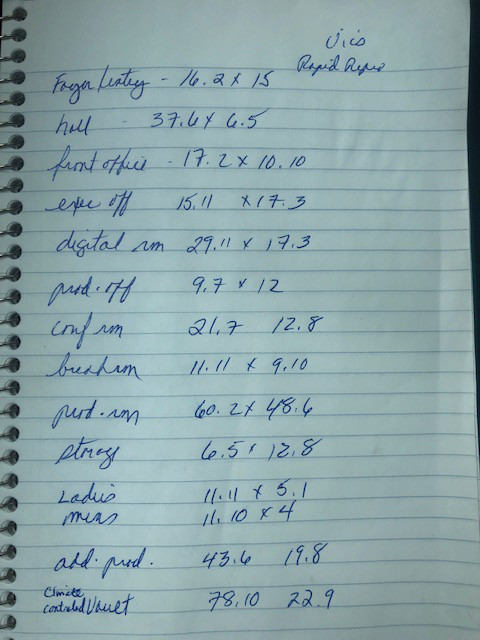 Vic's
Rapid Repro
Foyer/entry - 16.2 x 15
hall - 37.6 x 6.5
front office - 17.2 x 10.10
exec off 15.11 x 17.3
digital rm 29.11 x 17.3
prod. off 9.7 x 12
conf rm 21.7 12.8
break rm 11.11 x 9.10
prod. rm 60.2 x 48.6
storage 6.5 x 12.8
Ladies 11.11 x 5.1
mens 11.10 x 4
add. prod. 43.6 19.8
Climate
controlled Vault 78.10 22.9